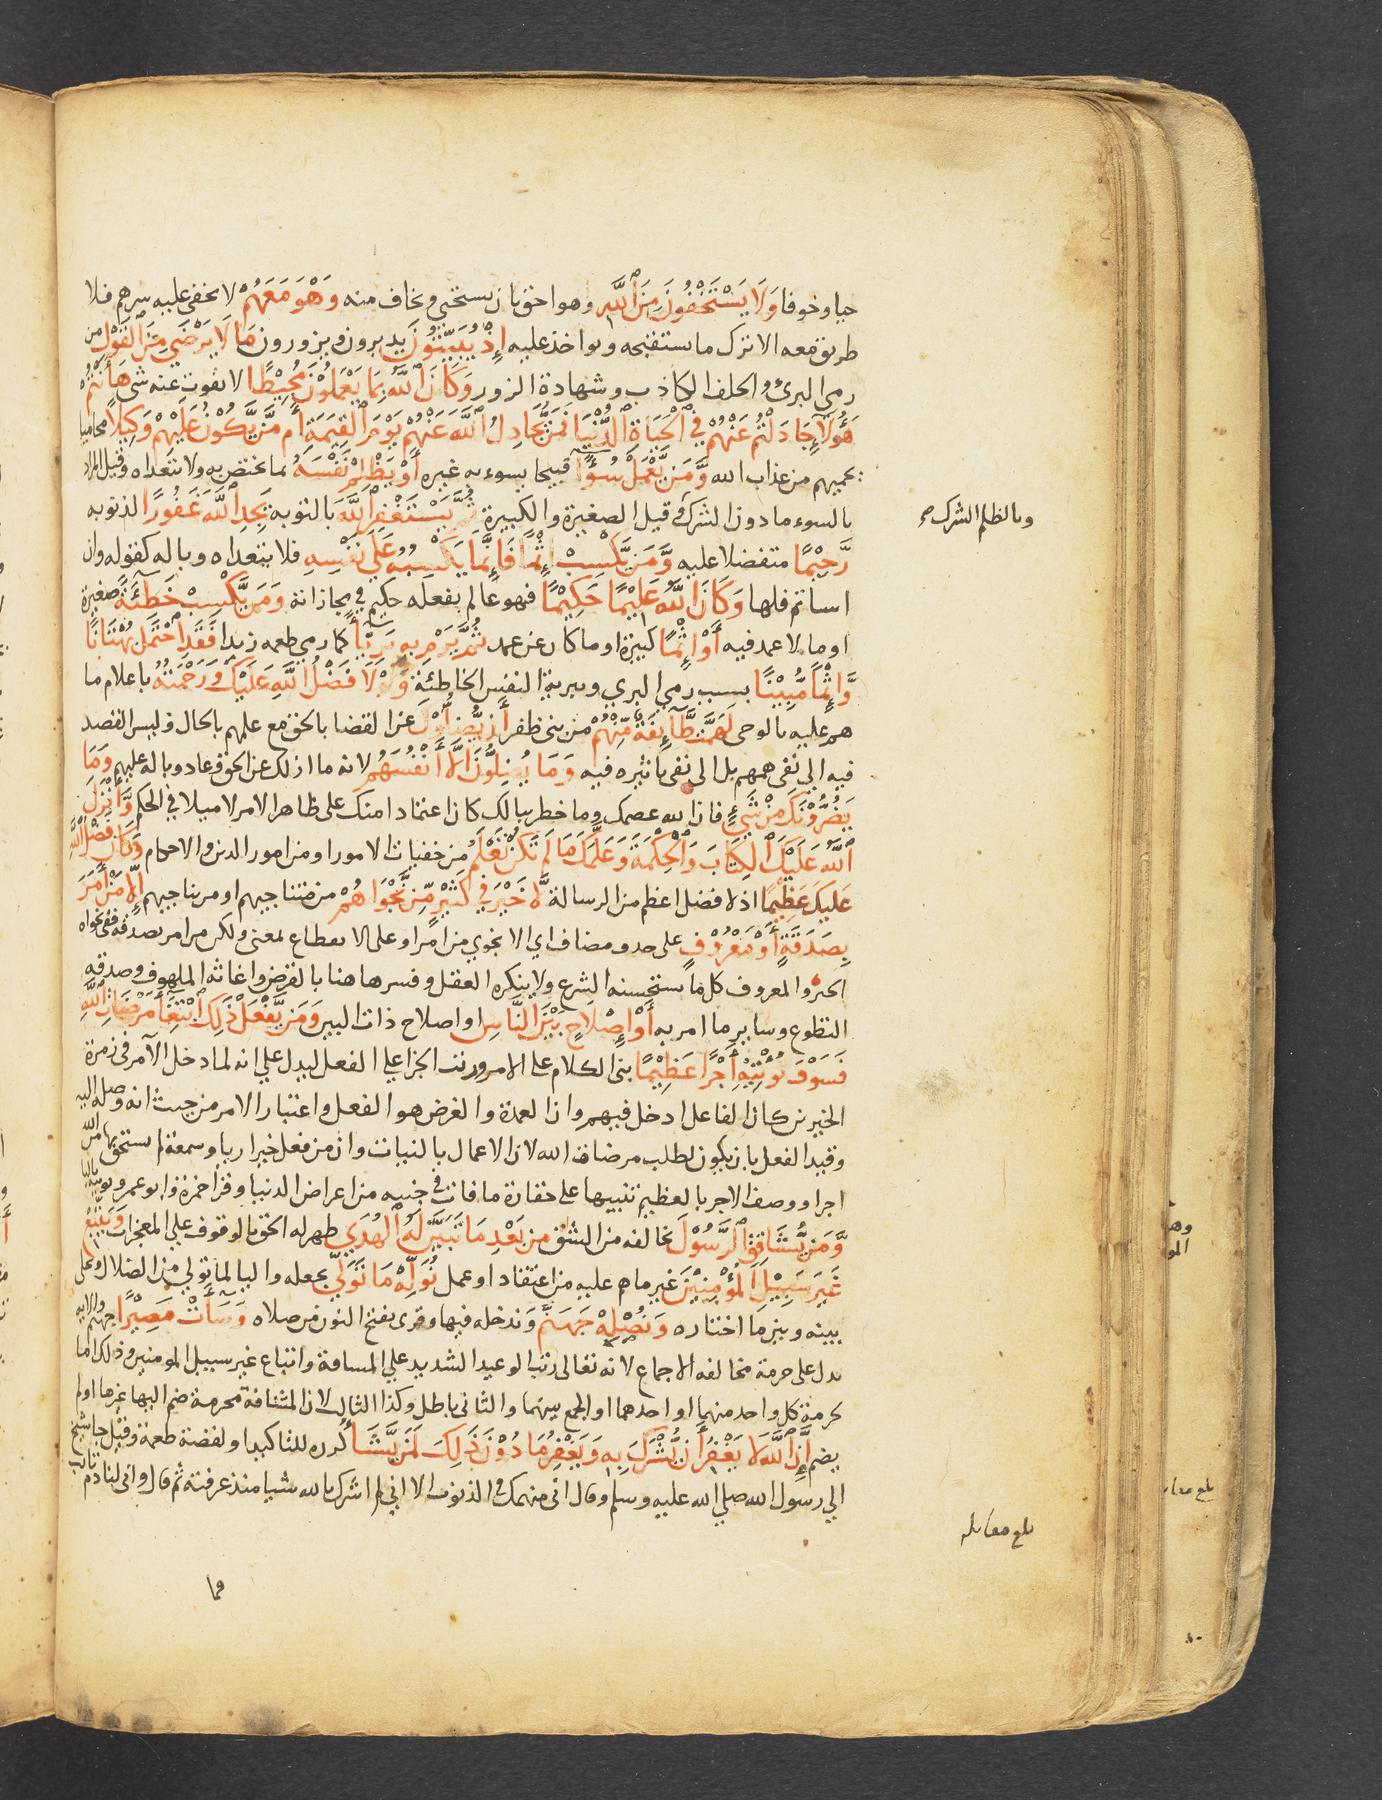 حيا وخوفا وَلَا يَسْتَخْفُونَ مِنَ ٱللَّهِ وهو احق بان يستحيي ويخاف منه وَهْوَ مَعَهُمْ لا يخفى عليه سرهم فلا
طريق معه الا ترك ما يستقبحه ويواخذ عليه إِذْ يُبَيِّتُونَ يدبرون ويزورون مَا لَا يَرْضَى مِنَ ٱلْقَوْلِ من
رمي البرئ والحلف الكاذب وشهادة الزور وَكَانَ ٱللَّهُ بِمَا يَعْمَلُوْنَ مُحِيْطًا لا يفوت عنه شي هَأَنْتُمْ
هَؤُلَآءِ جَادَلْتُمْ عَنْهُمْ فِي ٱلْحَيَاةِ ٱلدُّنْيَا فَمَنْ يُّجَادِلُ ٱللَّهَ عَنْهُمْ يَوْمَ ٱلْقِيَمَةِ أَم مَّنْ يَّكُوْنُ عَلَيْهِمْ وَكِيْلًا محاميا
يحميهم من عذاب الله وَّمَن يَّعْمَلْ سُوْءًا قبيحا يسوء به غيره أَوْ يَظْلِمْ نَفْسَهُ بما يختص به ولا يتعداه وقيل المراد
بالسوء ما دون الشرك وقيل الصغيرة والكبيرة ثُمَّ يَسْتَغْفِرِ ٱللَّهَ بالتوبة يَجِدِ ٱللَّهَ غَفُورًا لذنوبه
وبالظلم الشرك صح
رَّحِيْمًا متفضلا عليه وَّمَن يَّكْسِبْ إِثْمًا فَإِنَّمَا يَكْسِبُهُ عَلَى نَفْسِهِ فلا يتعداه وباله كقوله وان
اساتم فلها وَكَانَ ٱللَّهُ عَلِيْمًا حَكِيْمًا فهو عالم بفعله حكيم في مجازاته وَمَن يَّكْسِبْ خَطِيْئَةً صغيرة
او ما لا عمد فيه أَوْ إِثْمًا كبيرة او ما كان عن عمد ثُمَّ يَرْمِ بِهِ بَرِيْٓئًا كما رمي طعمه زيدا فَقَدِ ٱحْتَمَلَ بُهْتَانًا
وَّإِثْمًا مُّبِيْنًا بسبب رمي البري وتبرية النفس الخاطئة وَلَوْلَا فَضْلُ اللَّهِ عَلَيْكَ وَرَحْمَتُهُ باعلام ما
هم عليه بالوحي لَهَمَّت طَّآئِفَةٌ مِّنْهُمْ من بني ظفر أَن يُّضِلُّوْكَ عن القضا بالحق مع علمهم بالحال وليس القصد
فيه الى نفي همهم بل الى نفي تاثيره فيه وَمَا يُضِلُّوْنَ إِلَّا أَنْفُسَهُمْ لانه ما ازلك عن الحق وعاد وباله عليهم وَمَا
يَضُرُّوْنَكَ مِنْ شَيْءٍ فان الله عصمك وما خطر ببالك كان اعتمادا منك على ظاهر الامر لا ميلا في الحكم وَأَنْزَلَ
ٱللَّهُ عَلَيْكَ ٱلْكِتَابَ وَٱلْحِكْمَةَ وَعَلَّمَكَ مَا لَمْ تَكُنْ تَعْلَمُ من خفيات الامور او من امور الدين والاحكام وَكَانَ فَضْلُ ٱللَّهِ
عَلَيْكَ عَظِيْمًا اذ لا فضل اعظم من الرسالة لَّا خَيْرَ فِي كَثِيْرٍ مِّنْ نَّجْوَاهُمْ من متناجيهم او من تناجيهم إِلَّا مَنْ أَمَرَ
بِصَدَقَةٍ أَوْ مَعْرُوْفٍ على حدف مضاف اي الا نجوي من امر او على الانقطاع بمعنى ولكن من امر بصدقة ففي نجواه
الخير والمعروف كل ما يستحسنه الشرع ولا ينكره العقل وفسر هاهنا بالقرض واغاثة الملهوف وصدقة
التطوع وساير ما امر به أَوْ إِصْلَاحٍ بَيْنَ النَّاسِ او اصلاح ذات البين وَمَن يَّفْعَلْ ذَلِكَ ٱبْتِغَآءَ مَرْضَاتِ ٱللَّهِ
فَسَوْفَ نُؤْتِيْهِ أَجْرًا عَظِيْمًا بنى الكلام على الامر ورتب الجزا على الفعل ليدل على انه لما دخل الآمر في زمرة
الخيرين كان الفاعل ادخل فيهم وان العمدة والغرض هو الفعل واعتبار الامر من حيث انه وصلة اليه
وقيد الفعل بان يكون لطلب مرضات الله لان الاعمال بالنيات وان من فعل خيرا ريا وسمعة لم يستحق بها من الله
اجرا ووصف الاجر بالعظيم تنبيها على حقارة ما فات في جنبه من اعراض الدنيا وقرا حمزة وابو عمرو يوتيه باليا
وَّمَن يُّشَاقِقِ ٱلرَّسُوْلَ يخالفه من الشق مِن بَعْدِ مَا تَبَيَّنَ لَهُ ٱلْهُدَى ظهر له الحق بالوقوف على المعجزات وَيَتَّبِعْ
غَيْرَ سَبِيْلِ الْمُؤْمِنِيْنَ غير ما هم عليه من اعتقاد او عمل نُوَلِّهْ مَا تَوَلَّى نجعله واليا لما تولى من الضلال ونخلي
بينه وبين ما اختاره وَنُصْلِهْ جَهَنَّمَ وندخله فيها وقرى بفتح النون من صلاه وَسَآءَتْ مَصِيْرًا جهنم والاية
تدل على حرمة مخالفة الاجماع لانه تعالى رتب الوعيد الشديد على المشاقة واتباع غير سبيل المومنين وذلك اما
لحرمة كل واحد منهما او احدهما او الجمع بينهما والثاني باطل وكذا الثالث لان المشاقة محرمة ضم اليها غيرها او لم
يضم إِنَّ ٱللَّهَ لَا يَغْفِرُ أَن يُّشْرَكَ بِهِ وَيَغْفِرُ مَا دُوْنَ ذَلِكَ لِمَن يَّشَآءُ كرره للتاكيد او لقصة طعمة وقيل جا شيخ
الى رسول الله صلى الله عليه وسلم وقال اني شيخ منهمك في الذنوب الا اني لم اشرك بالله شيا منذ عرفته ثم قال واني لنادم تائب
بلغ مقابلة
فما